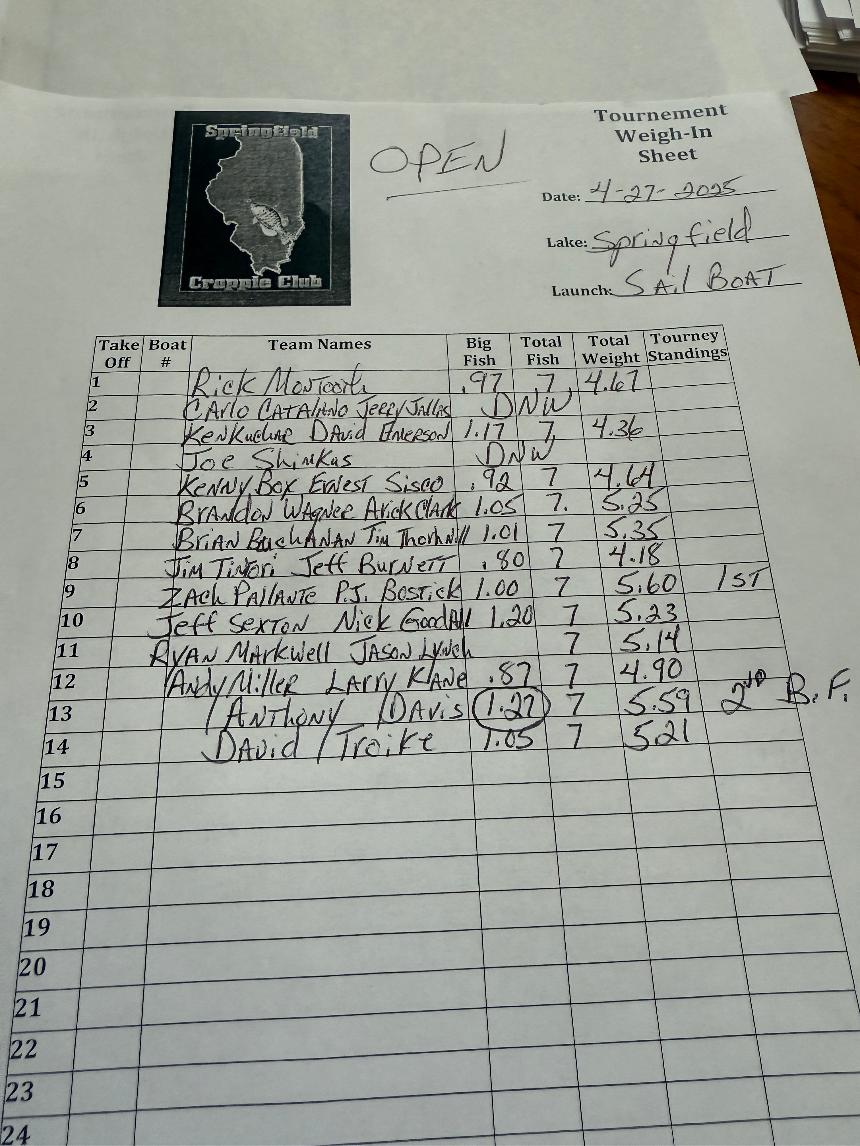 Springfield
Crappie Club
OPEN
Tournement
Weigh-In
Sheet
Date: 4-27-2025
Lake: Springfield
Launch: SAil BOAT
Take Off Boat # Team Names Big Fish Total Fish Total Weight Tourney Standings
1 Rick Montooth .97 7 4.67
2 CArlo CATAlANO JERRY JAllas DNW
3 KenKuchar DAvid EmERSON 1.17 7 4.36
4 Joe ShimKas DNW
5 KENNY Box ErNEST Sisco .92 7 4.64
6 BRANDON WAgnER Arick ClArk 1.05 7. 5.25
7 BriAN BuchANAN Tim Thornhill 1.01 7 5.35
8 Jim TiNori Jeff BurNETT .80 7 4.18
9 ZAch PAllANTE P.J. BosTick 1.00 7 5.60 1ST
10 Jeff SExTON Nick GoodAll 1.20 7 5.23
11 RYAN MArkwell JASON LyNch 7 5.14
12 ANdy Miller LArry KANe .87 7 4.90
13 / ANTHONY / DAvis 1.27 7 5.59 2ND B.F.
14 DAvid / Troike 1.05 7 5.21
15
16
17
18
19
20
21
22
23
24